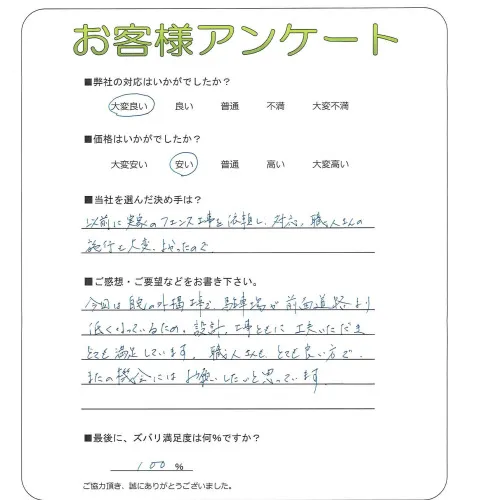 お客様アンケート
■弊社の対応はいかがでしたか？
大変良い 良い 普通 不満 大変不満
■価格はいかがでしたか？
大変安い 安い 普通 高い 大変高い
■当社を選んだ決め手は？
以前に実家のフェンス工事を依頼し、対応、職人さんの
施行も大変、よかったので
■ご感想・ご要望などをお書き下さい。
今回は自宅の外構工事で、駐車場が前面道路より
低くなっているため、設計、工事ともに工夫いただき
とても満足しています。職人さんも、とても良い方で、
またの機会にはお願いしたいと思っています
■最後に、ズバリ満足度は何％ですか？
100 ％
ご協力頂き、誠にありがとうございました。